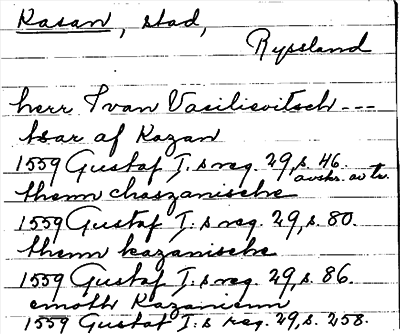 Kasan, stad,
Ryssland
herr Ivan Vasilievitsch ---
tsar af Kazan
1559 Gustaf I.s reg. 29, s. 46.
avskr. av tr.
themn chaszanische
1559 Gustaf I.s reg. 29, s. 80.
themn kazanische
1559 Gustaf I.s reg. 29, s. 86.
emoth Kazanienn
1559 Gustaf I.s reg. 29, s. 258.